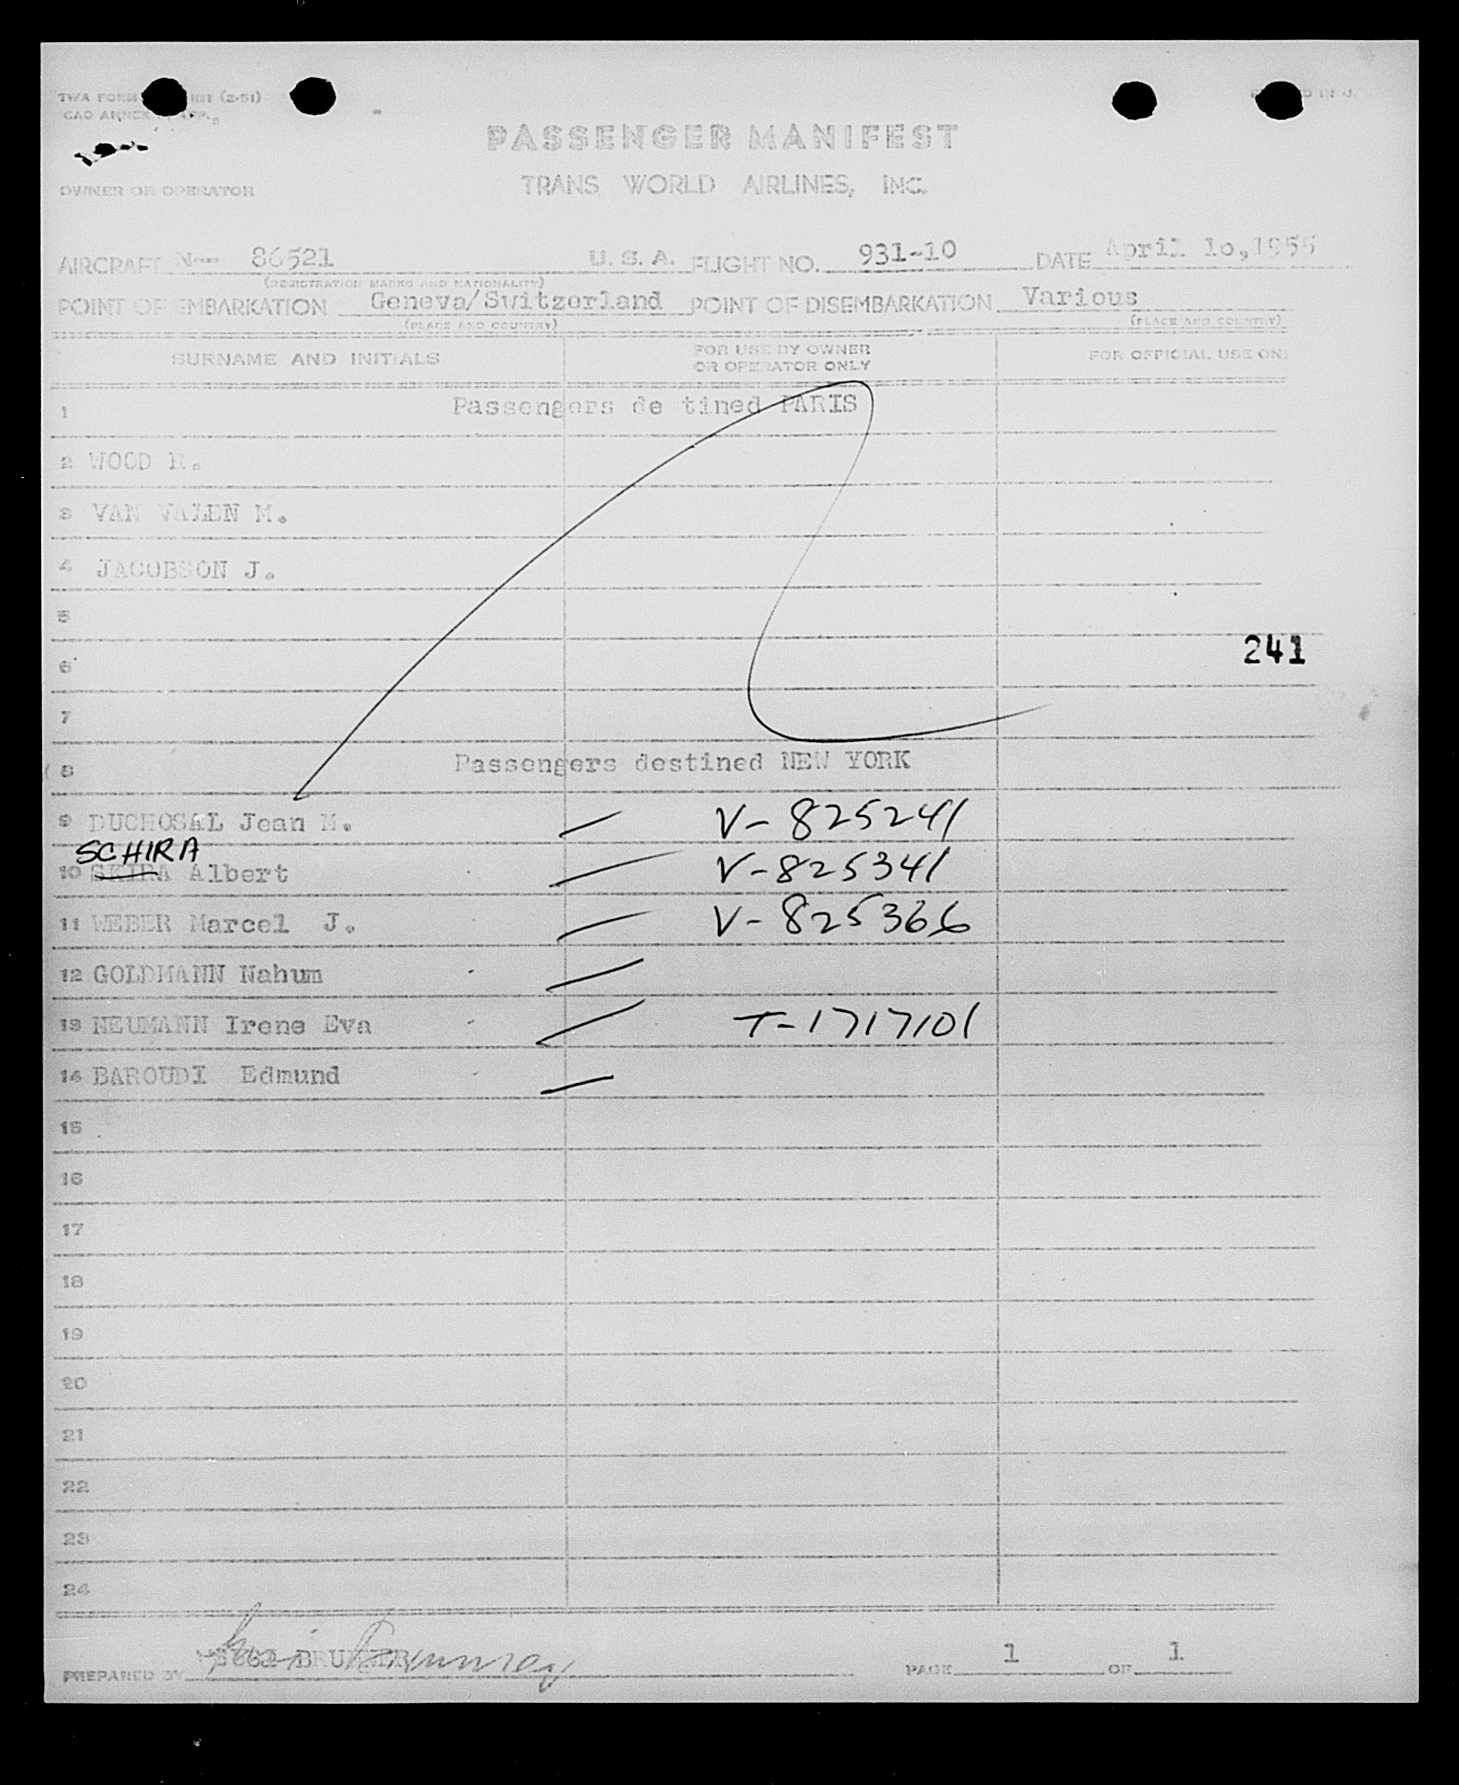 TWA FORM (2-51)
PASSENGER MANIFEST
OWNER OR OPERATOR
TRANS WORLD AIRLINES, INC.
AIRCRAFT N-- 86521 U. S. A. FLIGHT NO. 931-10 DATE April 10,1955
(REGISTRATION MARKS AND NATIONALITY)
POINT OF EMBARKATION Geneva/Switzerland POINT OF DISEMBARKATION Various
(PLACE AND COUNTRY) (PLACE AND COUNTRY)
SURNAME AND INITIALS FOR USE BY OWNER OR OPERATOR ONLY FOR OFFICIAL USE ON
1 Passengers de tined PARIS
2 WOOD
3 VAN VALEN M.
4 JACOBSON J.
5
6
241
7
8 Passengers destined NEW YORK
9 DUCHOSAL Jean M. V-825241
SCHIRA
10 SKIRA Albert V-825341
11 WEBER Marcel J. V-825366
12 GOLDMANN Nahum
13 NEUMANN Irene Eva T-1717101
14 BAROUDI Edmund
15
16
17
18
19
20
21
22
23
24
PREPARED BY PAGE 1 OF 1